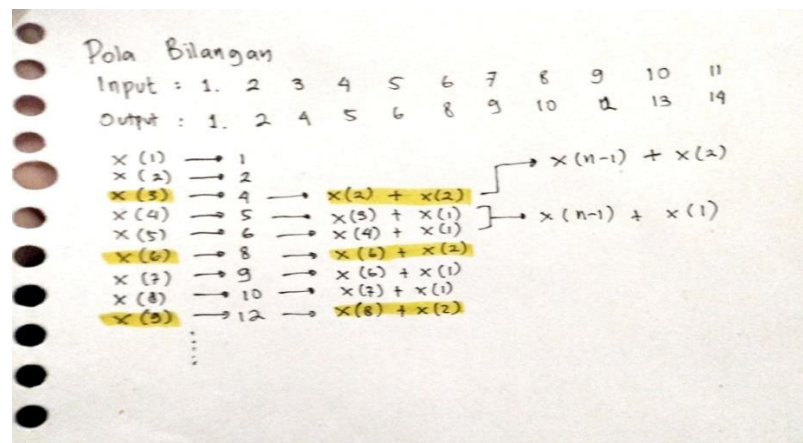 Pola Bilangan
Input : 1. 2 3 4 5 6 7 8 9 10 11
Output : 1. 2 4 5 6 8 9 10 12 13 14
x (1) → 1
x (2) → 2
x (3) → 4 → x(2) + x(2) → x(n-1) + x(2)
x (4) → 5 → x(3) + x(1) → x(n-1) + x(1)
x (5) → 6 → x(4) + x(1)
x (6) → 8 → x(6) + x(2)
x (7) → 9 → x(6) + x(1)
x (8) → 10 → x(7) + x(1)
x (9) → 12 → x(8) + x(2)